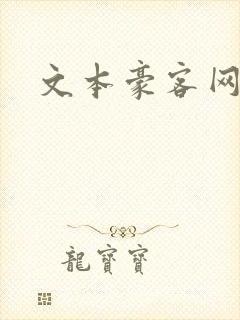 文本豪客网
龍寶寶